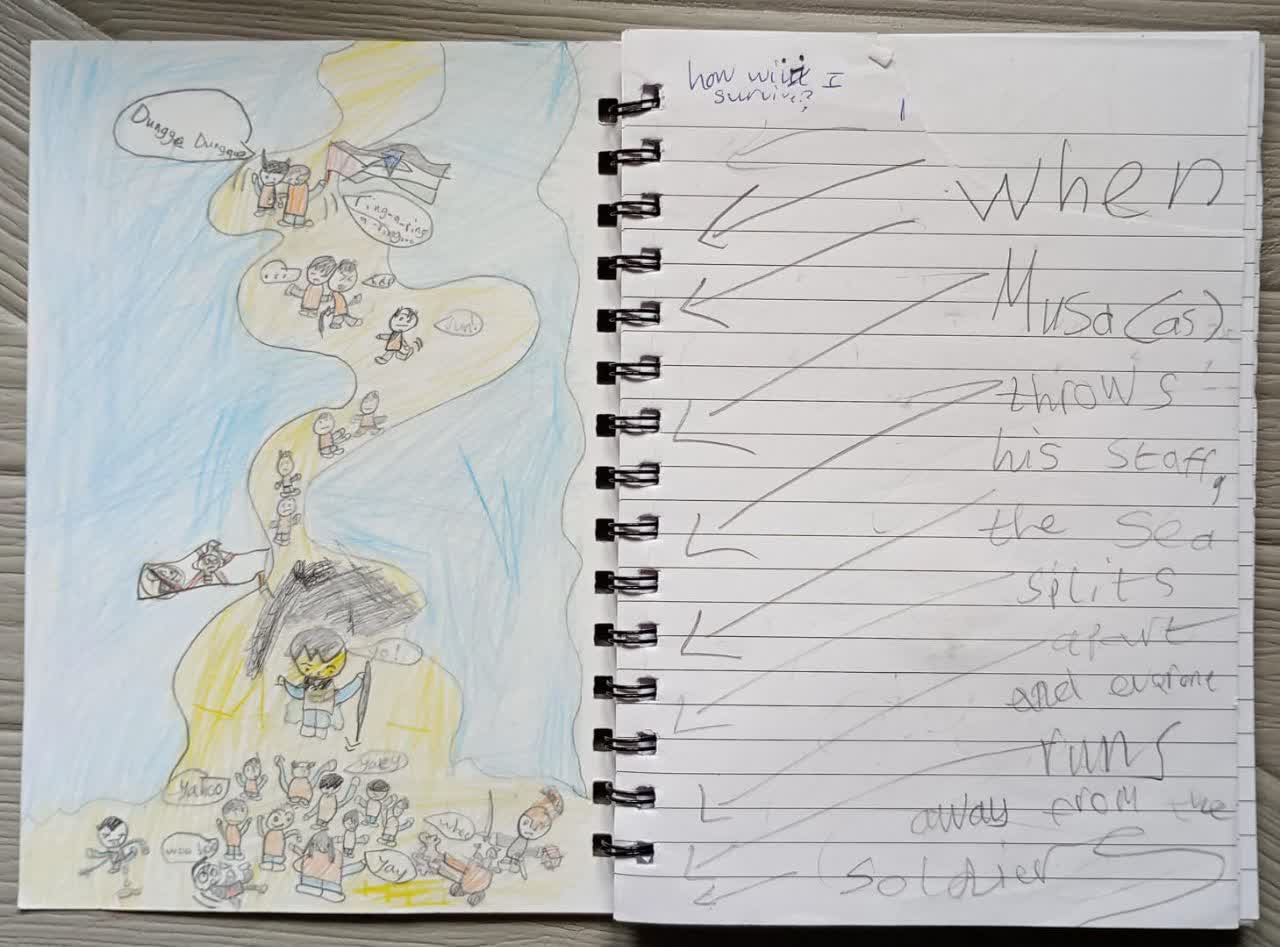 Dungge Dungge
ring-a-ring
a-ring...
...
run!
yo!
yaey
yahoo
whee
woo hoo
yay
how will I
survive?
when
Musa (as)
throws
his staff,
the sea
splits
apart
and everone
runs
away from the
soldier